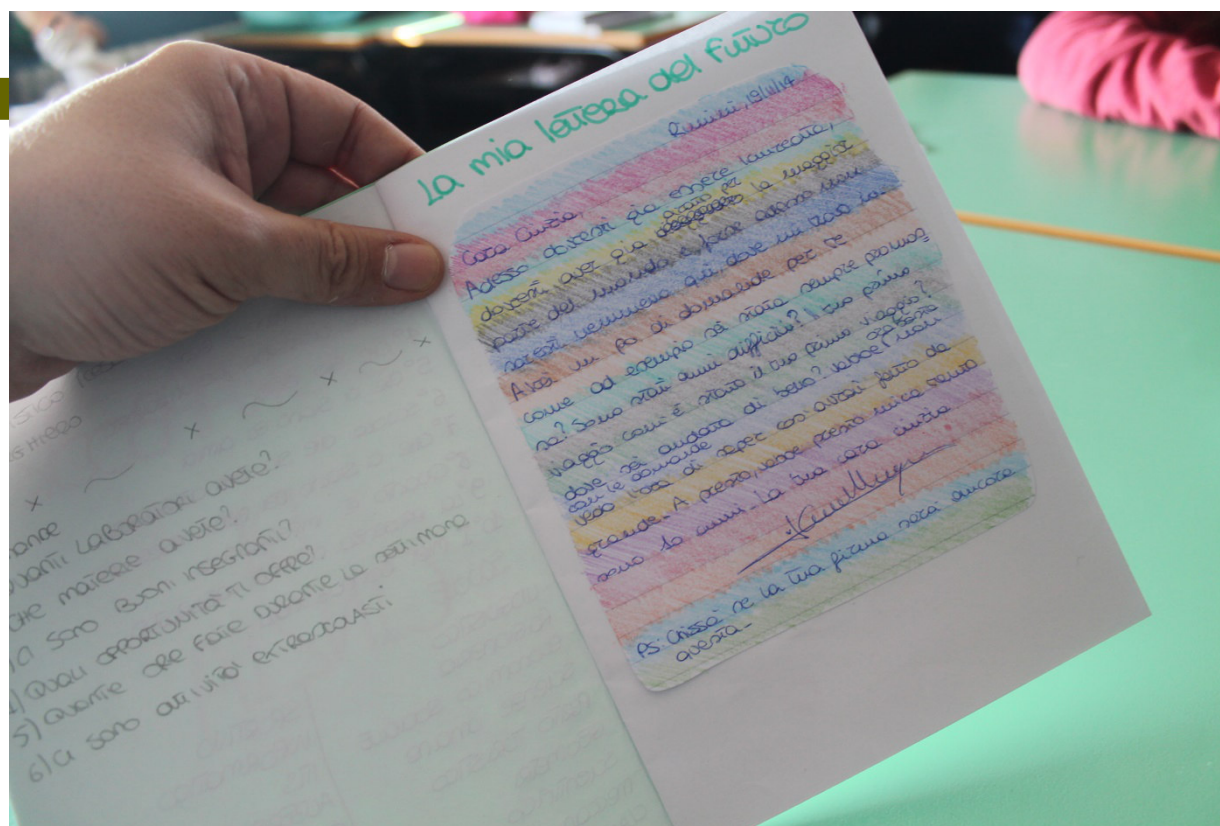 La mia lettera del futuro
Rimini, 19/11/14
Cara Cinzia,
Adesso dovresti già essere laureata,
dovresti aver già avuto per la maggior
parte del mondo e forse adesso non
saresti nemmeno qui, dove mi trovo io.
Avrei un po di domande per te
come ad esempio sei stata sempre promos=
sa? Sono stati anni difficili? Il tuo primo
viaggio com'è stato il tuo primo viaggio?
dove sei andata di bello? vabbe, non
con le domande
vedo l'ora di saper cos'avrai fatto da
grande. A presto, vabbe presto mica tanto
sono 10 anni. La tua cara cinzia
PS: Chissà se la tua firma sarà ancora
questa-
ande
uanti LABORATORI avete?
che materie avete?
ci sono buoni insegnanti?
4) Quali opportunità ti offre?
5) Quante ore fate durante la settimana
6) ci sono attività extrascolasti